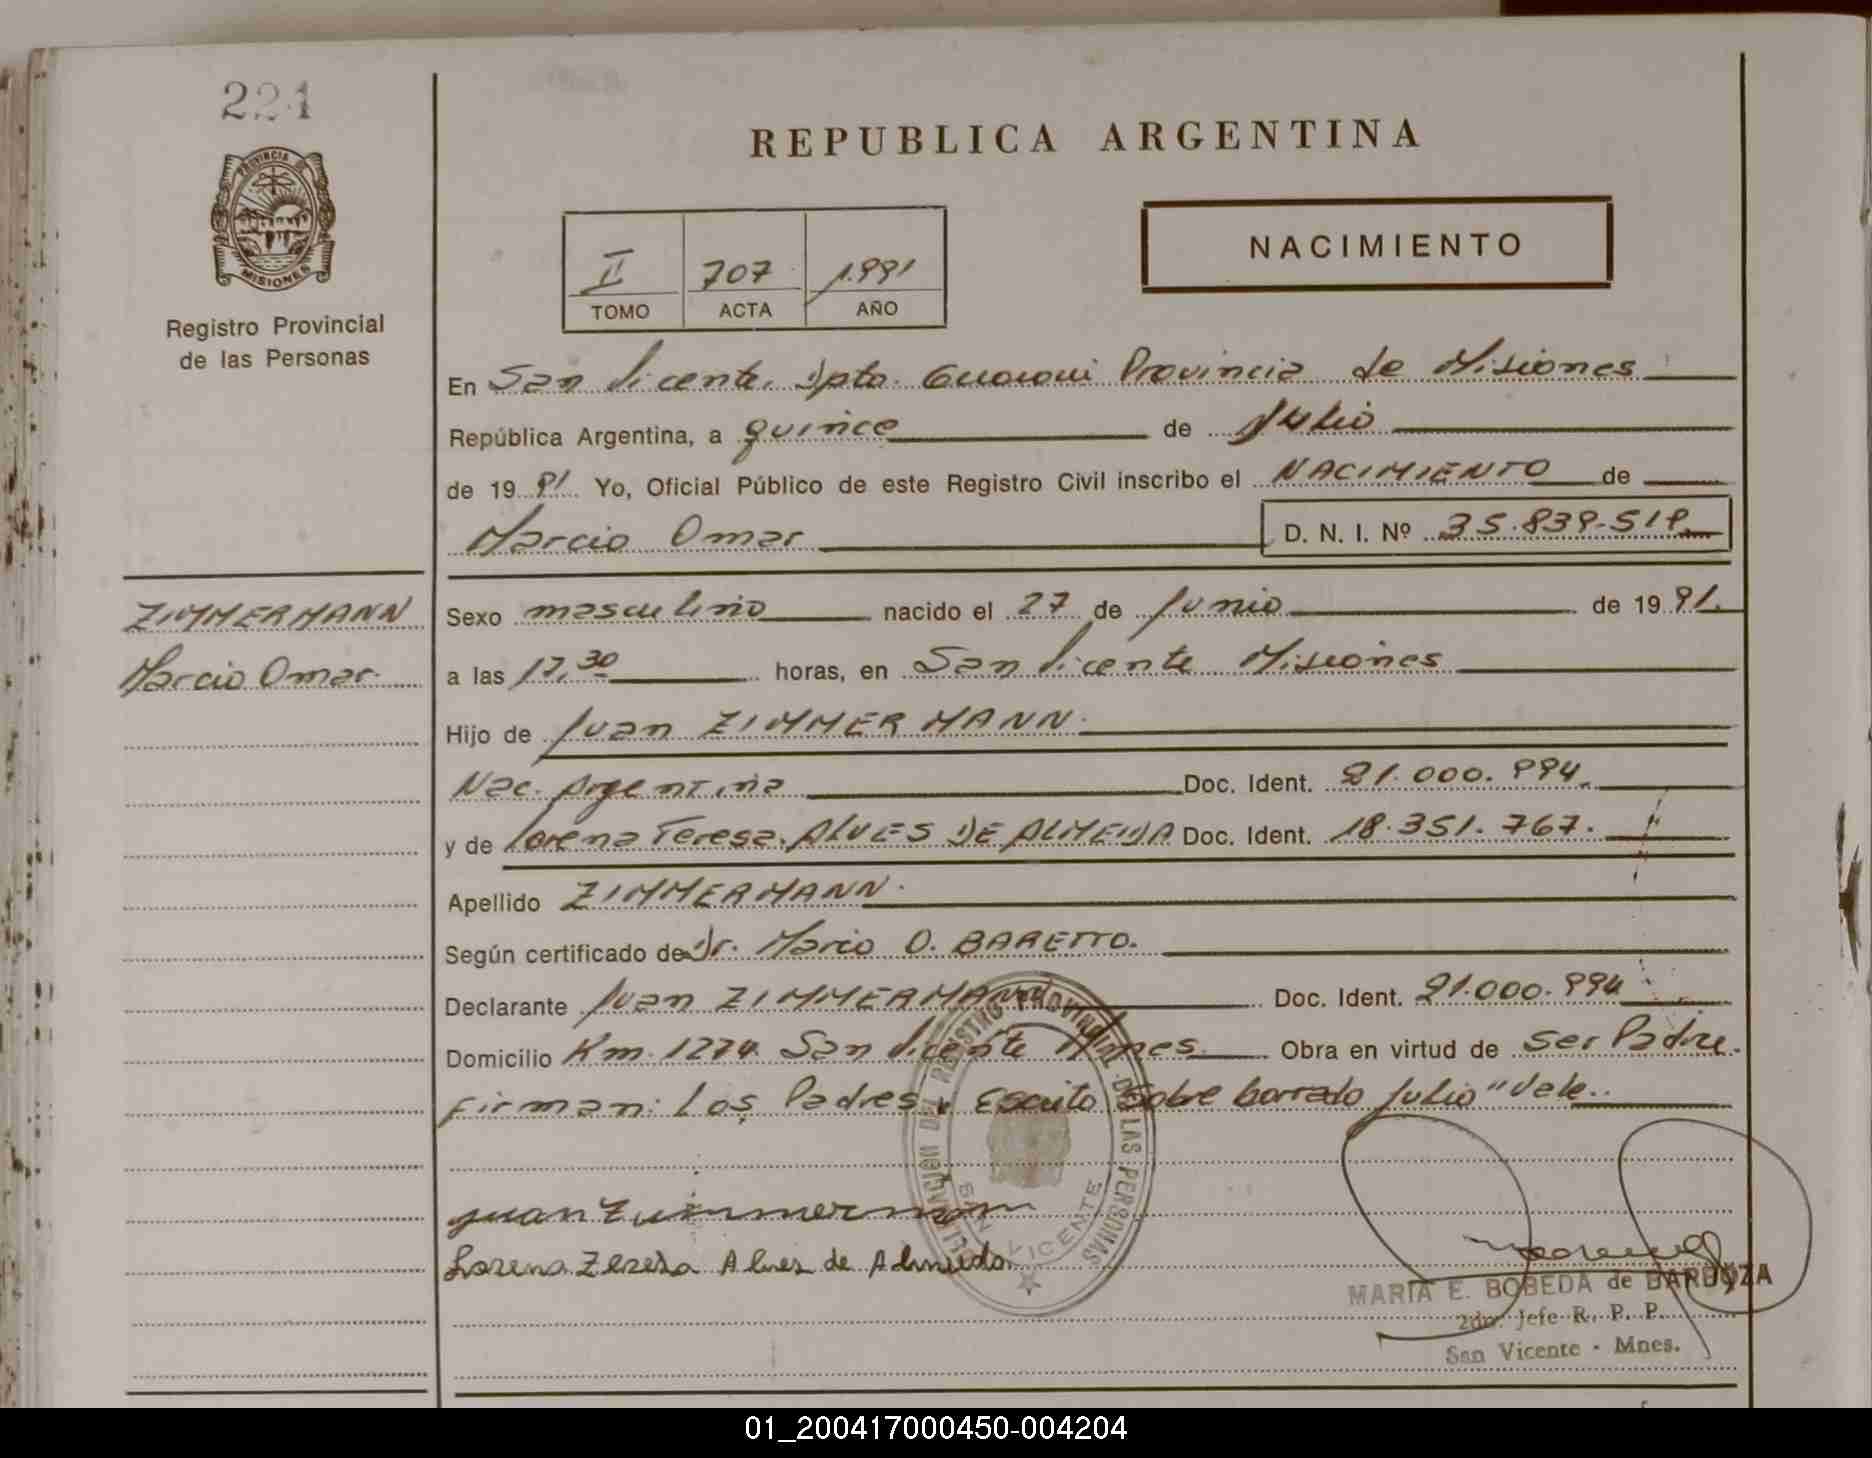 224
PROVINCIA DE
MISIONES
Registro Provincial
de las Personas
REPUBLICA ARGENTINA
II 707 1.991
TOMO ACTA AÑO
NACIMIENTO
En San Vicente, Dpto. Guaraní Provincia de Misiones
República Argentina, a quince de Julio
de 1991 Yo, Oficial Público de este Registro Civil inscribo el NACIMIENTO de
Marcio Omar D. N. I. Nº 35.839.519
ZIMMERMANN
Marcio Omar
Sexo masculino nacido el 27 de Junio de 1991.
a las 17,30 horas, en San Vicente Misiones
Hijo de Juan ZIMMERMANN.
Nac. Argentina Doc. Ident. 21.000.994.
y de Lorena Teresa ALVES DE ALMEIDA Doc. Ident. 18.351.767.
Apellido ZIMMERMANN.
Según certificado de Dr. Mario O. BARETTO.
Declarante Juan ZIMMERMANN Doc. Ident. 21.000.994
Domicilio Km. 1274 San Vicente Mnes. Obra en virtud de ser Padre.
Firman: Los Padres. Escrito Sobre borrado Julio" Vale..
Juan Zimmerman
Lorena Teresa Alves de Almeida
DEL REGISTRO PROVINCIAL DE LAS PERSONAS
SAN VICENTE
MARIA E. BOBEDA de BARBOZA
2do. Jefe R. P. P.
San Vicente - Mnes.
01_200417000450-004204